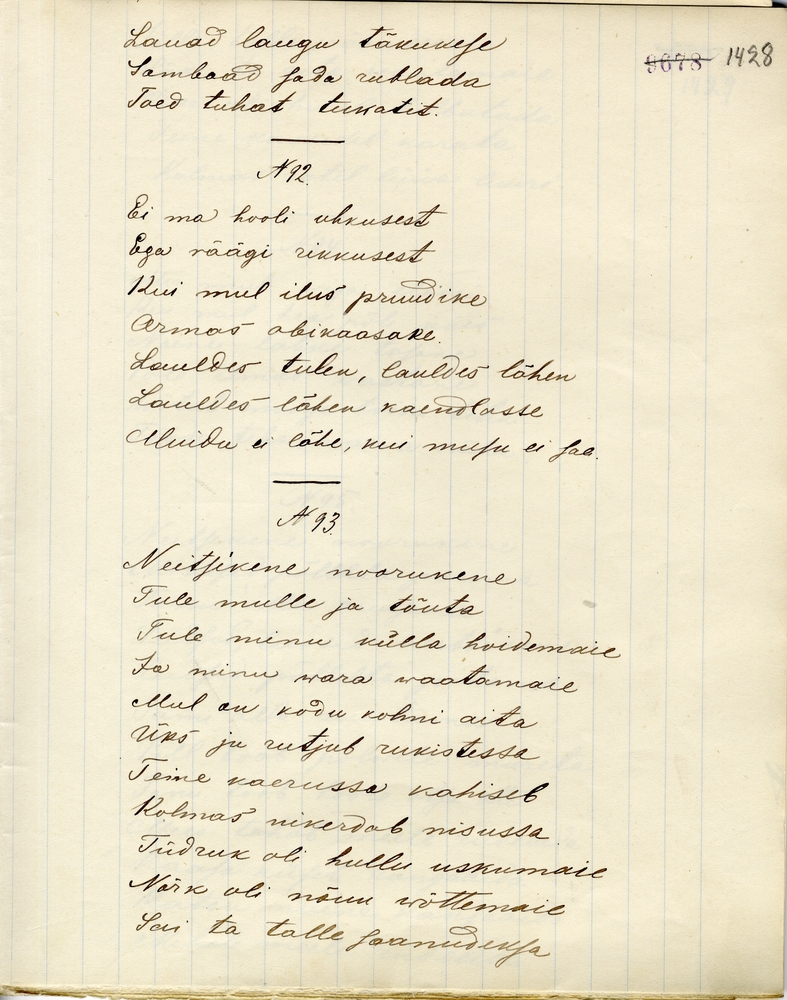 Lauad laugu täkukese
Sambaad sada rublada
Toed tuhat tukatit.
9678 1428
N 92.
Ei ma hooli uhkusest
Ega räägi rikkusest
Kui mul ilus pruudike
Armas abikaasake.
Lauldes tulen, lauldes lähen
Lauldes lähen kaendlasse
Muidu ei lähe, kui musu ei saa.
N 93.
Neitsikene noorukene
Tule mulle ja tõuta
Tule minu külla hoidemaie
Ja minu wara waatamaie
Mul on kodu kolmi aita
Üks ju rutjub rukistessa
Teine kaerussa kahiseb
Kolmas nikerdab nisussa
Tüdruk oli hullu uskumaie
Närk oli nõuu wõttemaie
Sai ta talle saanudeksa